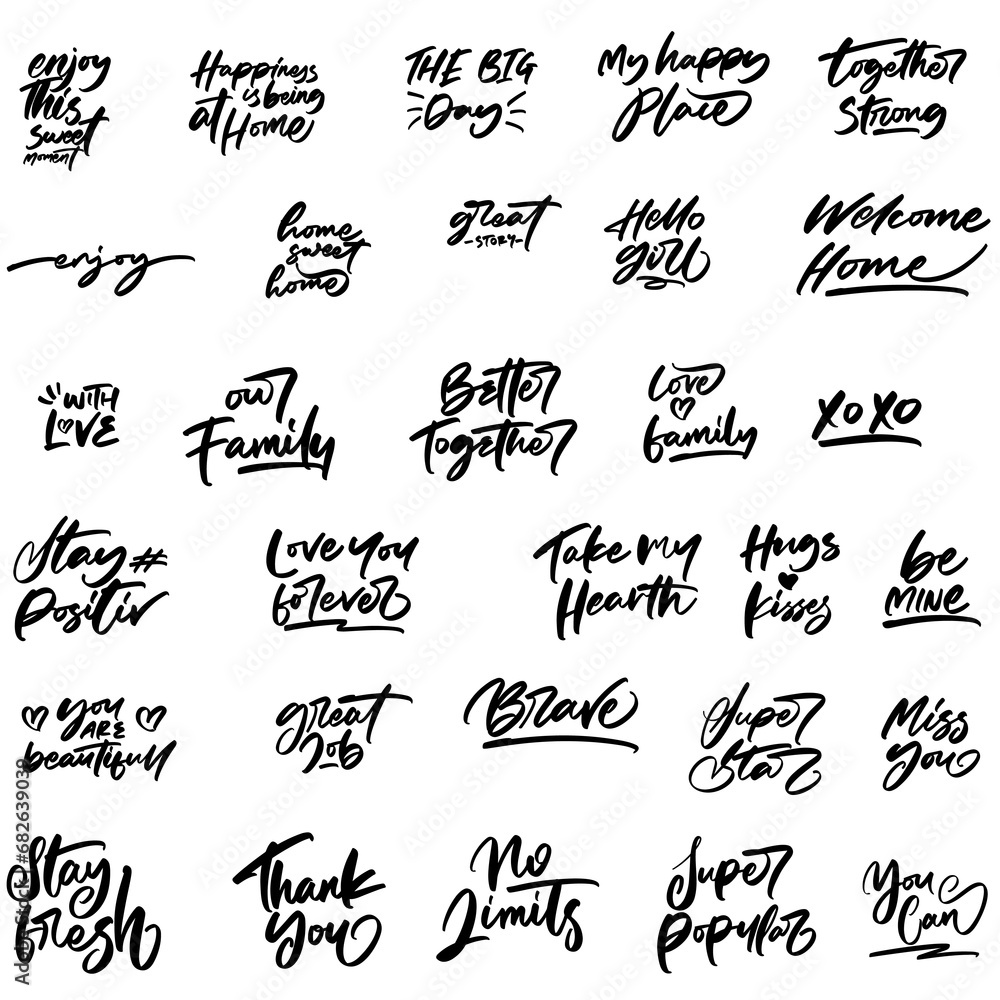 enjoy
This
sweet
moment
Happiness
is being
at Home
THE BIG
Day
My happy
Place
Together
Strong
enjoy
home
sweet
home
great
-STORY-
Hello
girl
Welcome
Home
WITH
LOVE
our
Family
Better
Together
Love
family
XOXO
Stay #
Positiv
Love you
forever
Take my
Hearth
Hugs
kisses
be
MINE
you
ARE
beautifull
great
Job
Brave
Super
Star
Miss
You
Stay
fresh
Thank
You
No
Limits
Super
Popular
You
Can
Adobe Stock | #682639039